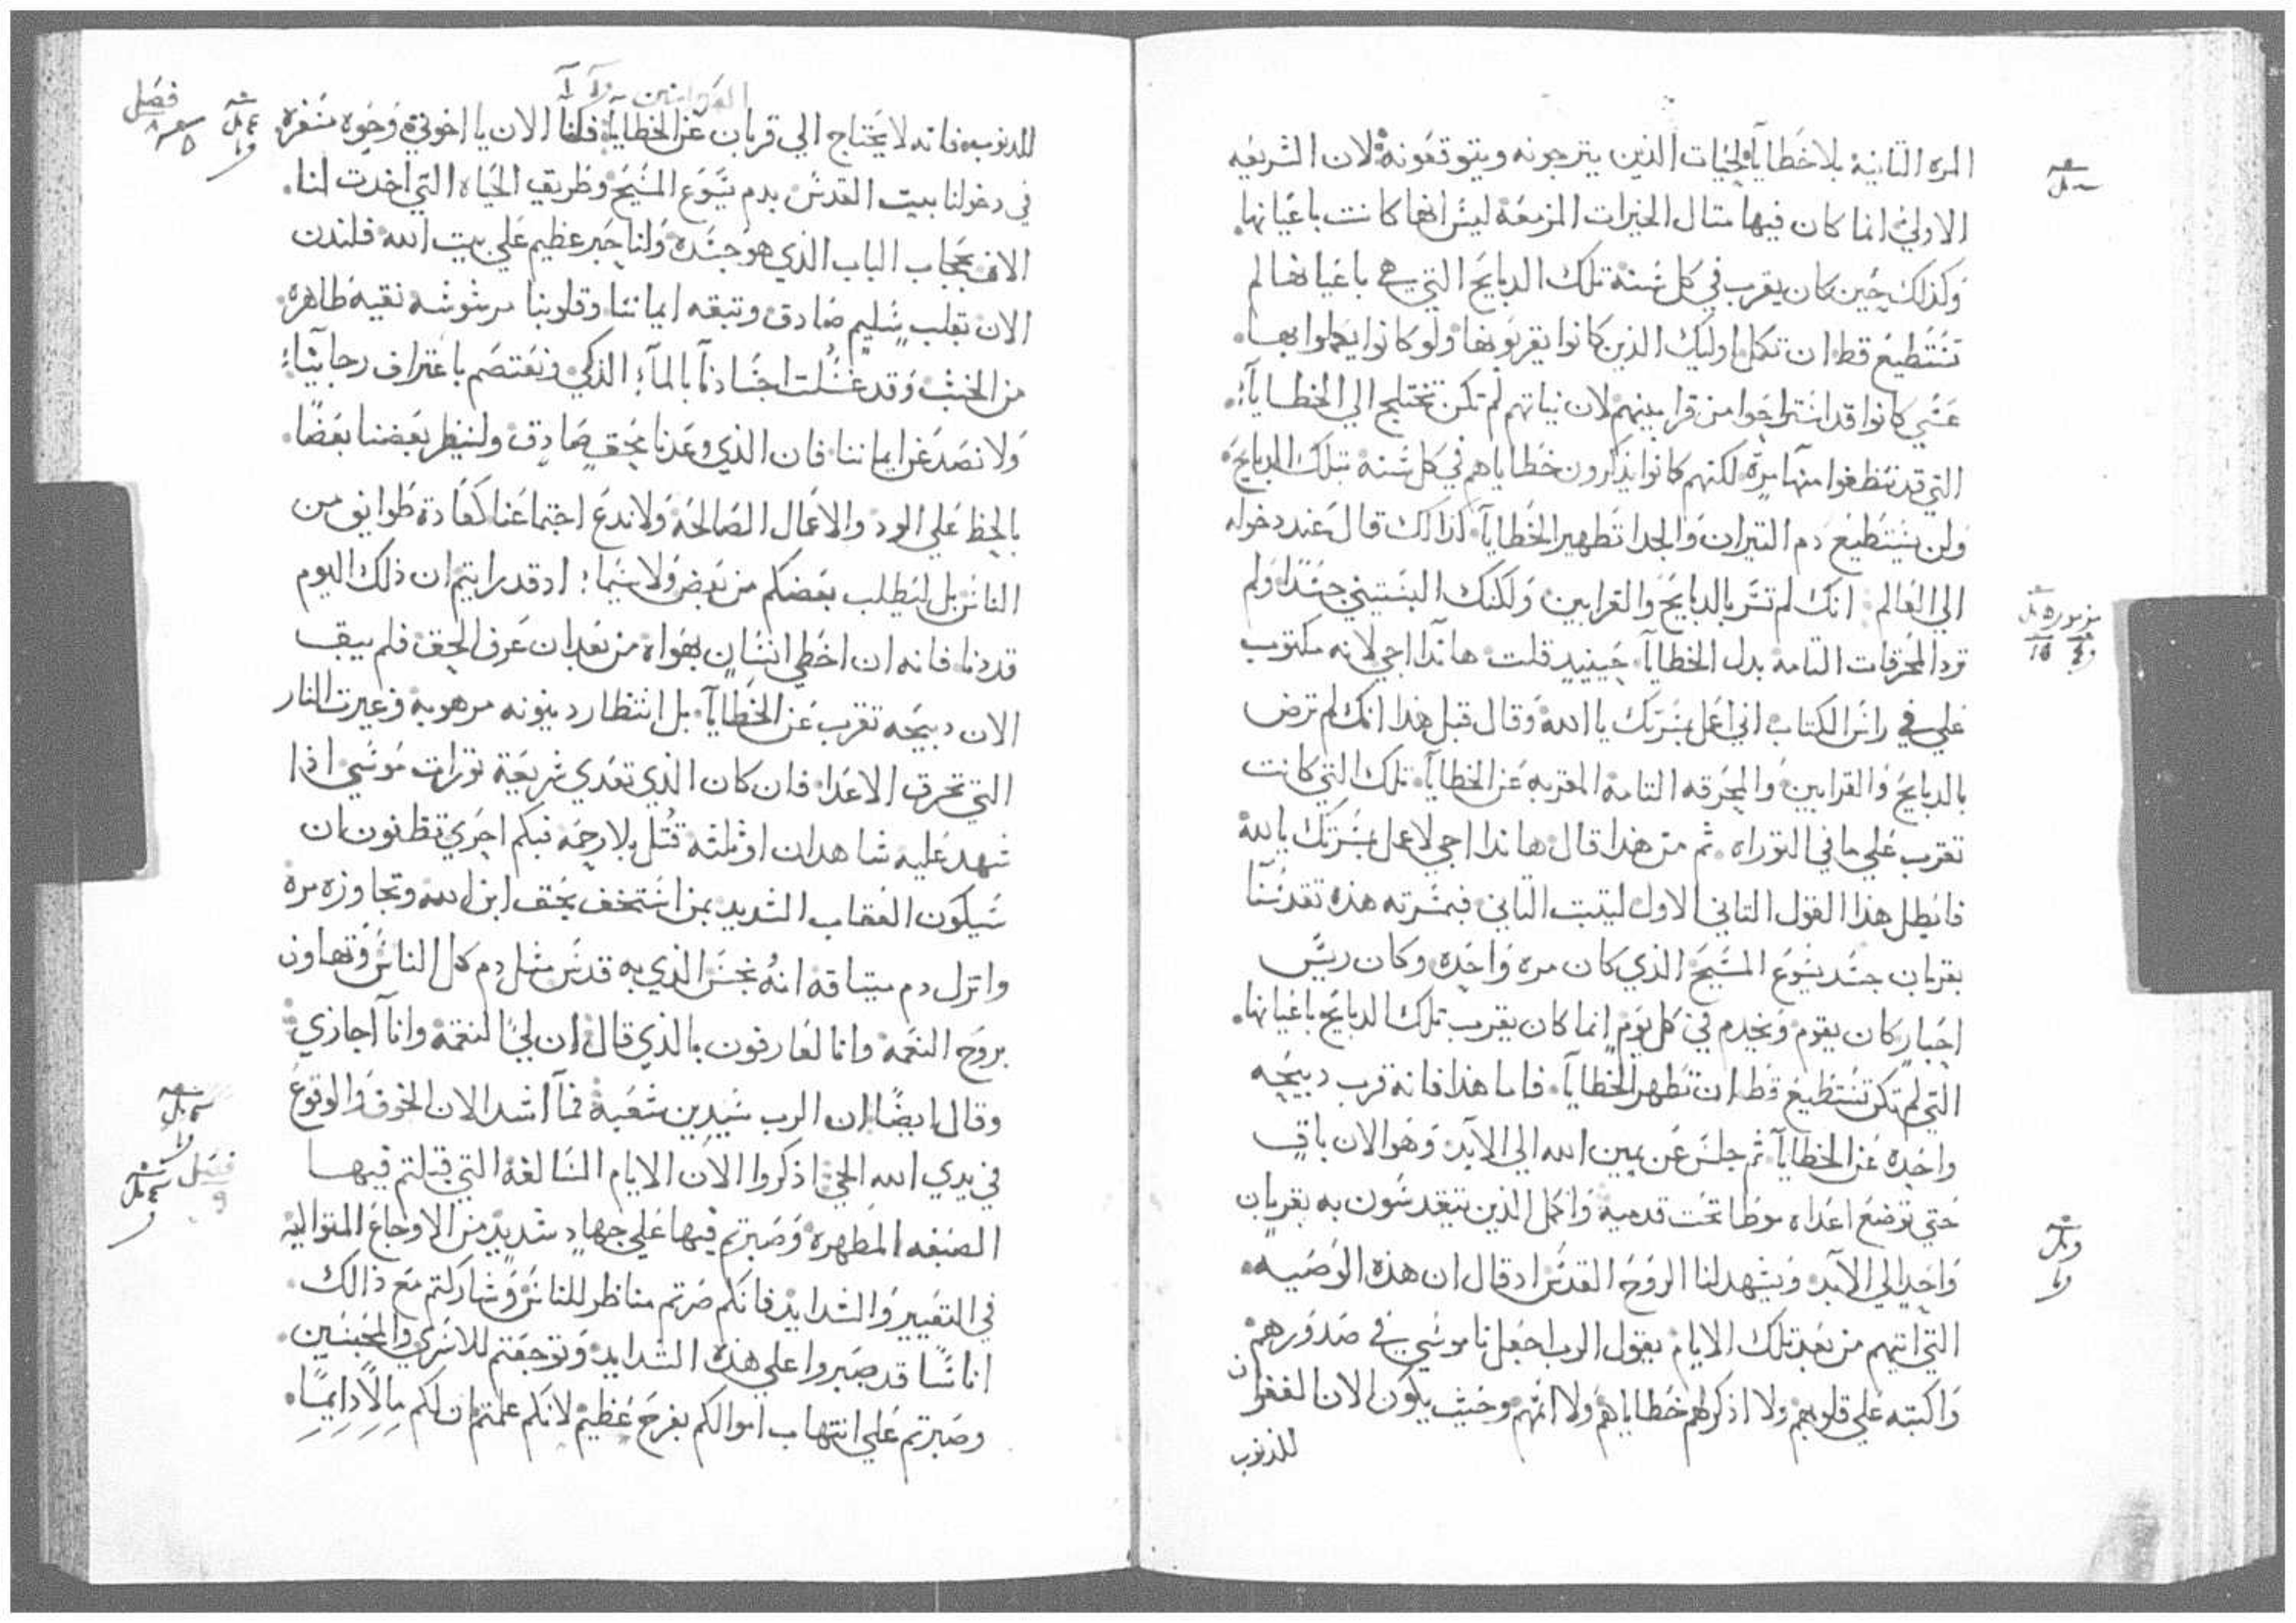 المره الثانية بلا خطايا لحيات الذين يترجونه ويتوقعونه لان الشريعه
الاولي انما كان فيها مثال الخيرات المزمعة ليس انها كانت باعيانها
وكذلك حين كان يقرب في كل سنة تلك الدبايح التي هي باعيانها لم
تستطيع قط ان تكمل اوليك الذين كانوا يقربونها ولو كانوا يكملوا بها
عسي كانوا قد استراحوا من قرابينهم لان نياتهم لم تكن تختلج الي الخطايا
التي قد تنظفوا منها مرة لكنهم كانوا يذكرون خطاياهم في كل سنة بتلك الدبايح
ولن يستطيع دم التيران والجدا تطهير الخطايا لذالك قال عند دخوله
الي العالم انك لم تسر بالدبايح والقرابين ولكنك البستيني جسدا ولم
ترد المحرقات التامة بدل الخطايا حينيد قلت هاندا اجي لانه مكتوب
علي في راس الكتاب اني اعمل بمسرتك يا الله وقال قبل هذا انك لم ترض
بالدبايح والقرابين والمحرقه التامة المقربه عن الخطايا تلك التي كانت
تقرب علي ما في التوراه ثم من هذا قال هاندا اجي لاعمل بمسرتك يا الله
فابطل هذا القول التاني الاول ليتبت التاني فبمسرته هذه تقدسنا
بقربان جسد يسوع المسيح الذي كان مره واحده وكان ريس
احبار كان يقوم ويخدم في كل يوم انما كان يقرب تلك الدبايح باعيانها
التي لم تكن تستطيع قط ان تطهر الخطايا فاما هذا فانه قرب دبيحه
واحده عن الخطايا ثم جلس عن يمين الله الي الابد وهو الان باق
حتي توضع اعداه موطا تحت قدميه واكمل الذين يتقدسون به بقربان
واحد الي الابد ويشهد لنا الروح القدس اد قال ان هذه الوصيه
التي اتيهم من بعد تلك الايام يقول الرب اجعل ناموسي في صدورهم
واكتبه علي قلوبهم ولا اذكر لهم خطاياهم ولا اثمهم وحيث يكون الان الغفران
للذنوب
للذنوب فانه لا يحتاج الي قربان عن الخطايا فلنا الان يا اخوتي وجوه مسفره
في دخولنا بيت القدس بدم يسوع المسيح وطريق الحياه التي اخدت لنا
الان بحجاب الباب الذي هو جسده ولنا حبر عظيم علي بيت الله فلندن
الان بقلب سليم صادق وتبقه ايماننا وقلوبنا مرشوشه نقيه طاهره
من الخبث وقد غسلت اجسادنا بالما الذكي ونعتصم باعتراف رجاينا
ولا نصد عن ايماننا فان الذي وعدنا محق صادق ولينظر بعضنا بعضا
بالحظ علي الود والاعمال الصالحه ولا ندع اجتماعنا كعادة طوايف من
الناس بل ليطلب بعضكم من بعض ولا سيما اد قد رايتم ان ذلك اليوم
قد دنا فانه ان اخطي انسان بهواه من بعد ان عرف الحق فلم يبق
الان دبيحه تقرب عن الخطايا بل انتظار دينونه مرهوبه وغيرت النار
التي تحرق الاعدا فان كان الذي تعدي شريعة توراة موسي اذا
شهد عليه شاهدان او ثلثه قتل بلا رحمه فبكم احري تظنون ان
سيكون العقاب الشديد بمن استخف بحق ابن الله وتجاوزه مره
وانزل دم ميتاقه انه نجس الذي به قدس مثل دم كل الناس وتهاون
بروح النعمه وانا لعارفون بالذي قال ان لي النقمة وانا اجازي
وقال ايضا ان الرب سيدين شعبه فما اشد الان الخوف والوقوع
في يدي الله الحي اذكروا الان الايام السالفة التي قبلتم فيها
الصبغه المطهره وصبرتم فيها علي جهاد شديد من الاوجاع المتواليه
في التعيير والشدايد فانكم صرتم مناظر للناس وشاركتم مع ذالك
اناسا قد صبروا علي هذه الشدايد وتوجعتم للاسري والمحبسين
وصبرتم علي انتهاب اموالكم بفرح عظيم لانكم علمتم ان لكم مالا دايما
فصل
فصل